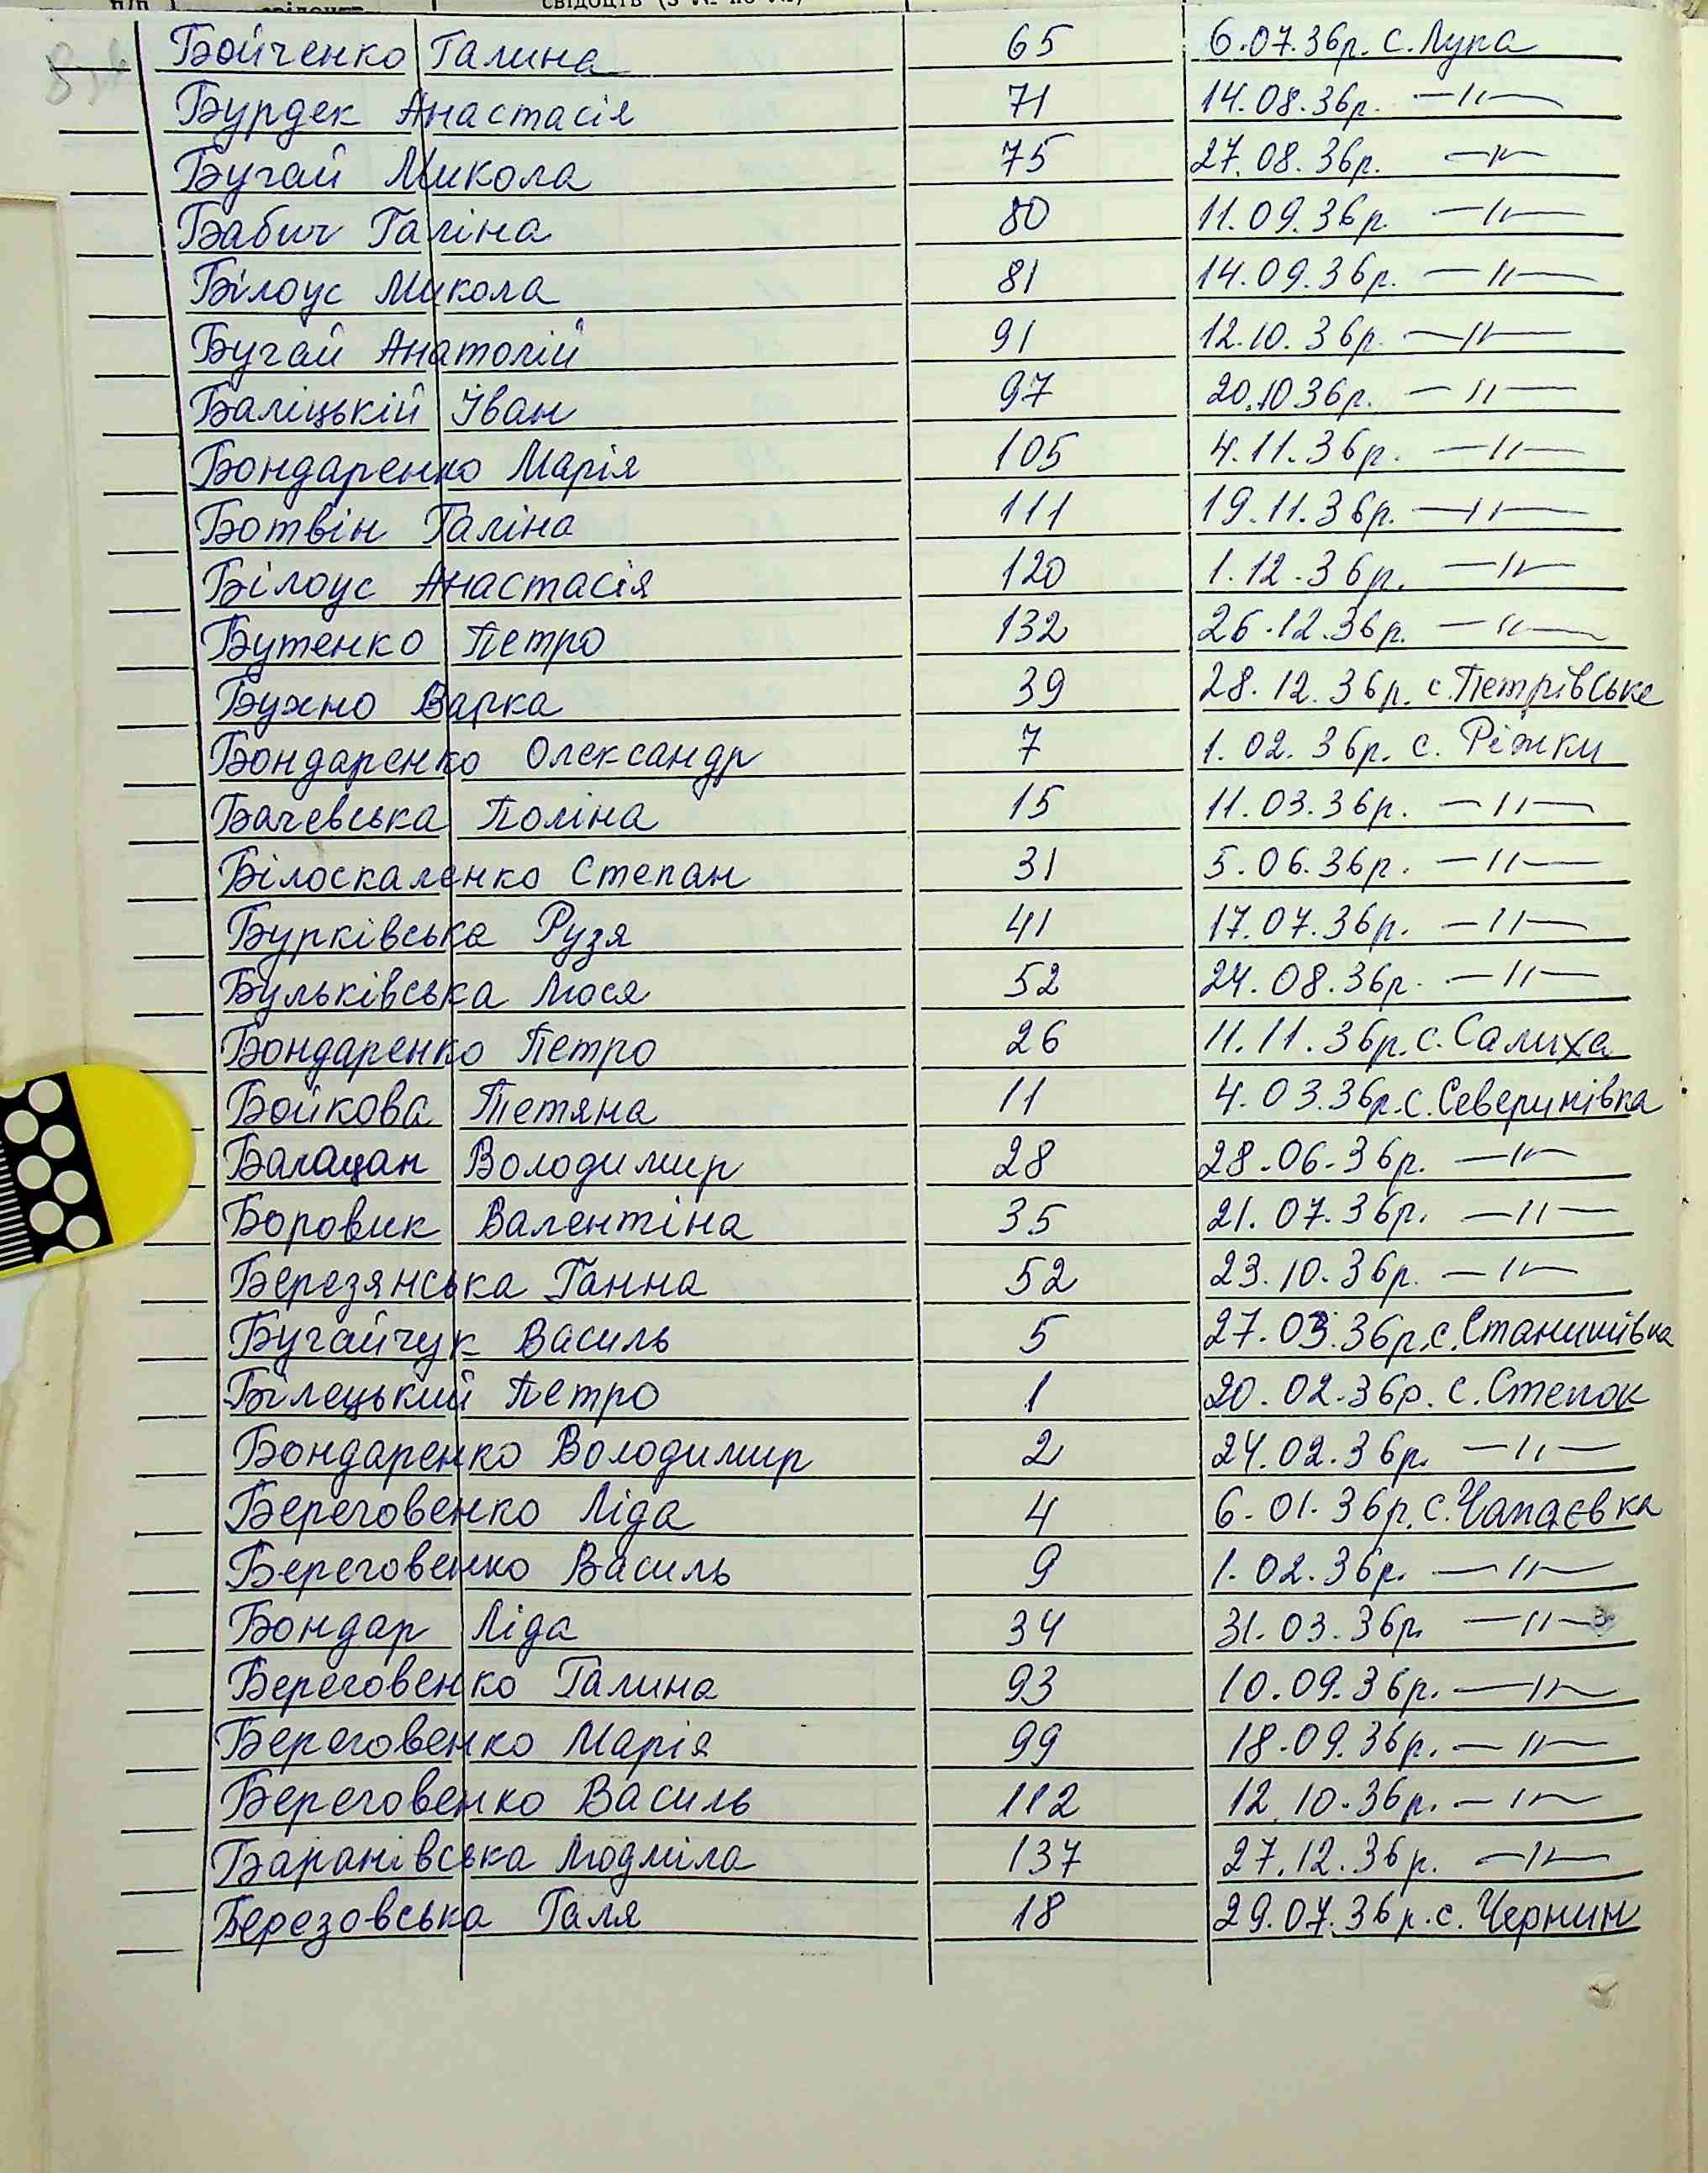 п/п свідоцтв (з № по №)
Бойченко Галина 65 6.07.36р. с. Лука
Бурдек Анастасія 71 14.08.36р. —"—
Бугай Микола 75 27.08.36р. —"—
Бабич Галіна 80 11.09.36р. —"—
Білоус Микола 81 14.09.36р. —"—
Бугай Анатолій 91 12.10.36р. —"—
Баліцькій Іван 97 20.10 36р. —"—
Бондаренко Марія 105 4.11.36р. —"—
Ботвін Галіна 111 19.11.36р. —"—
Білоус Анастасія 120 1.12.36р. —"—
Бутенко Петро 132 26.12.36р. —"—
Бухно Варка 39 28.12.36р. с. Петрівське
Бондаренко Олександр 7 1.02.36р. с. Ріжки
Бачевська Поліна 15 11.03.36р. —"—
Білоскаленко Степан 31 5.06.36р. —"—
Бурківська Рузя 41 17.07.36р. —"—
Бульківська Люся 52 24.08.36р. —"—
Бондаренко Петро 26 11.11.36р. с. Салиха
Бойкова Тетяна 11 4.03.36р. с. Северинівка
Багацан Володимир 28 28.06.36р. —"—
Боровик Валентіна 35 21.07.36р. —"—
Березянська Ганна 52 23.10.36р. —"—
Бугайчук Василь 5 27.03.36р. с. Станишівка
Білецький Петро 1 20.02.36р. с. Степок
Бондаренко Володимир 2 24.02.36р. —"—
Береговенко Ліда 4 6.01.36р. с. Чапаєвка
Береговенко Василь 9 1.02.36р. —"—
Бондар Ліда 34 31.03.36р. —"—
Береговенко Галина 93 10.09.36р. —"—
Береговенко Марія 99 18.09.36р. —"—
Береговенко Василь 112 12.10.36р. —"—
Баранівська Людміла 137 27.12.36р. —"—
Березовська Галя 18 29.07.36р. с. Чернин